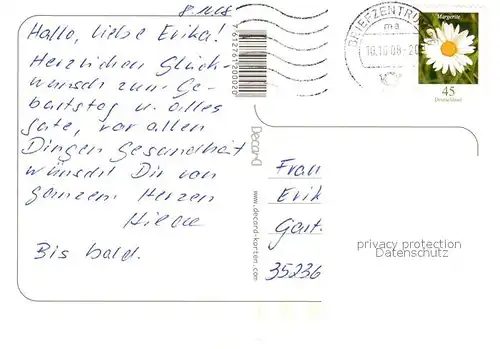 Hallo, liebe Erika!
Herzlichen Glück-
wunsch zum Ge-
burtstag u. alles
gute, vor allen
Dingen Gesundheit
wünscht Dir von
ganzem Herzen
Bis bald.
7612761200020
Decard
www.decard-karten.com
BRIEFZENTRUM
ma
Margerite
45
Deutschland
Frau
Erik
Gart
35236
privacy protection
Datenschutz